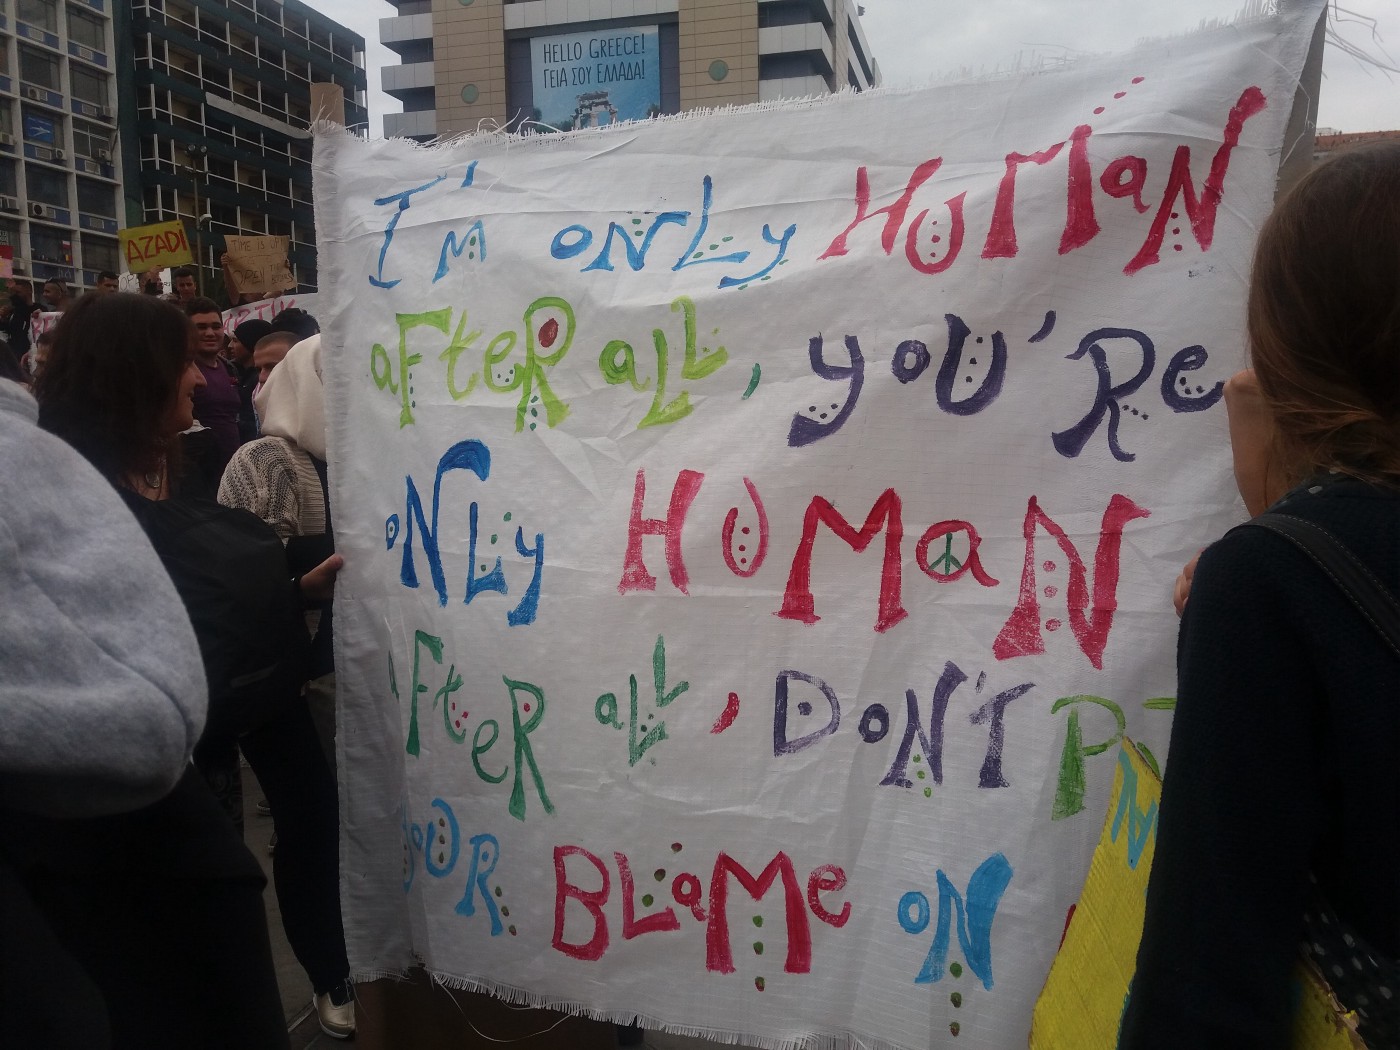 HELLO GREECE!
ΓΕΙΑ ΣΟΥ ΕΛΛΑΔΑ!
AZADI
TIME IS UP
OPEN
I'm only HUMAN
AFTER ALL, YOU'RE
ONLY HUMAN
AFTER ALL, DON'T
YOUR BLAME ON